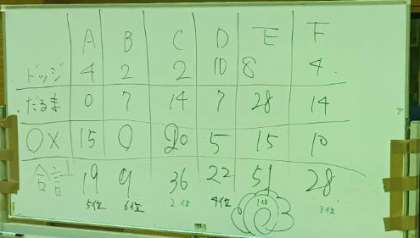 A B C D E F
ドッジ 4 2 2 10 8 4
だるま 0 7 14 7 28 14
OX 15 0 20 5 15 10
合計 19 9 36 22 51 28
5位 6位 2位 4位 1位 3位